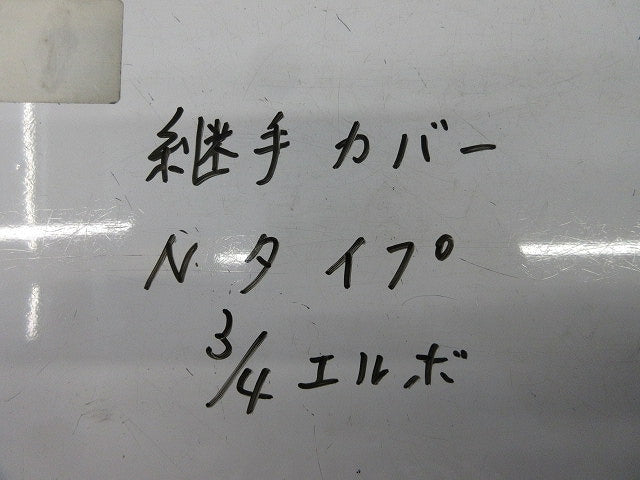 継手カバー
Nタイプ
3/4エルボ